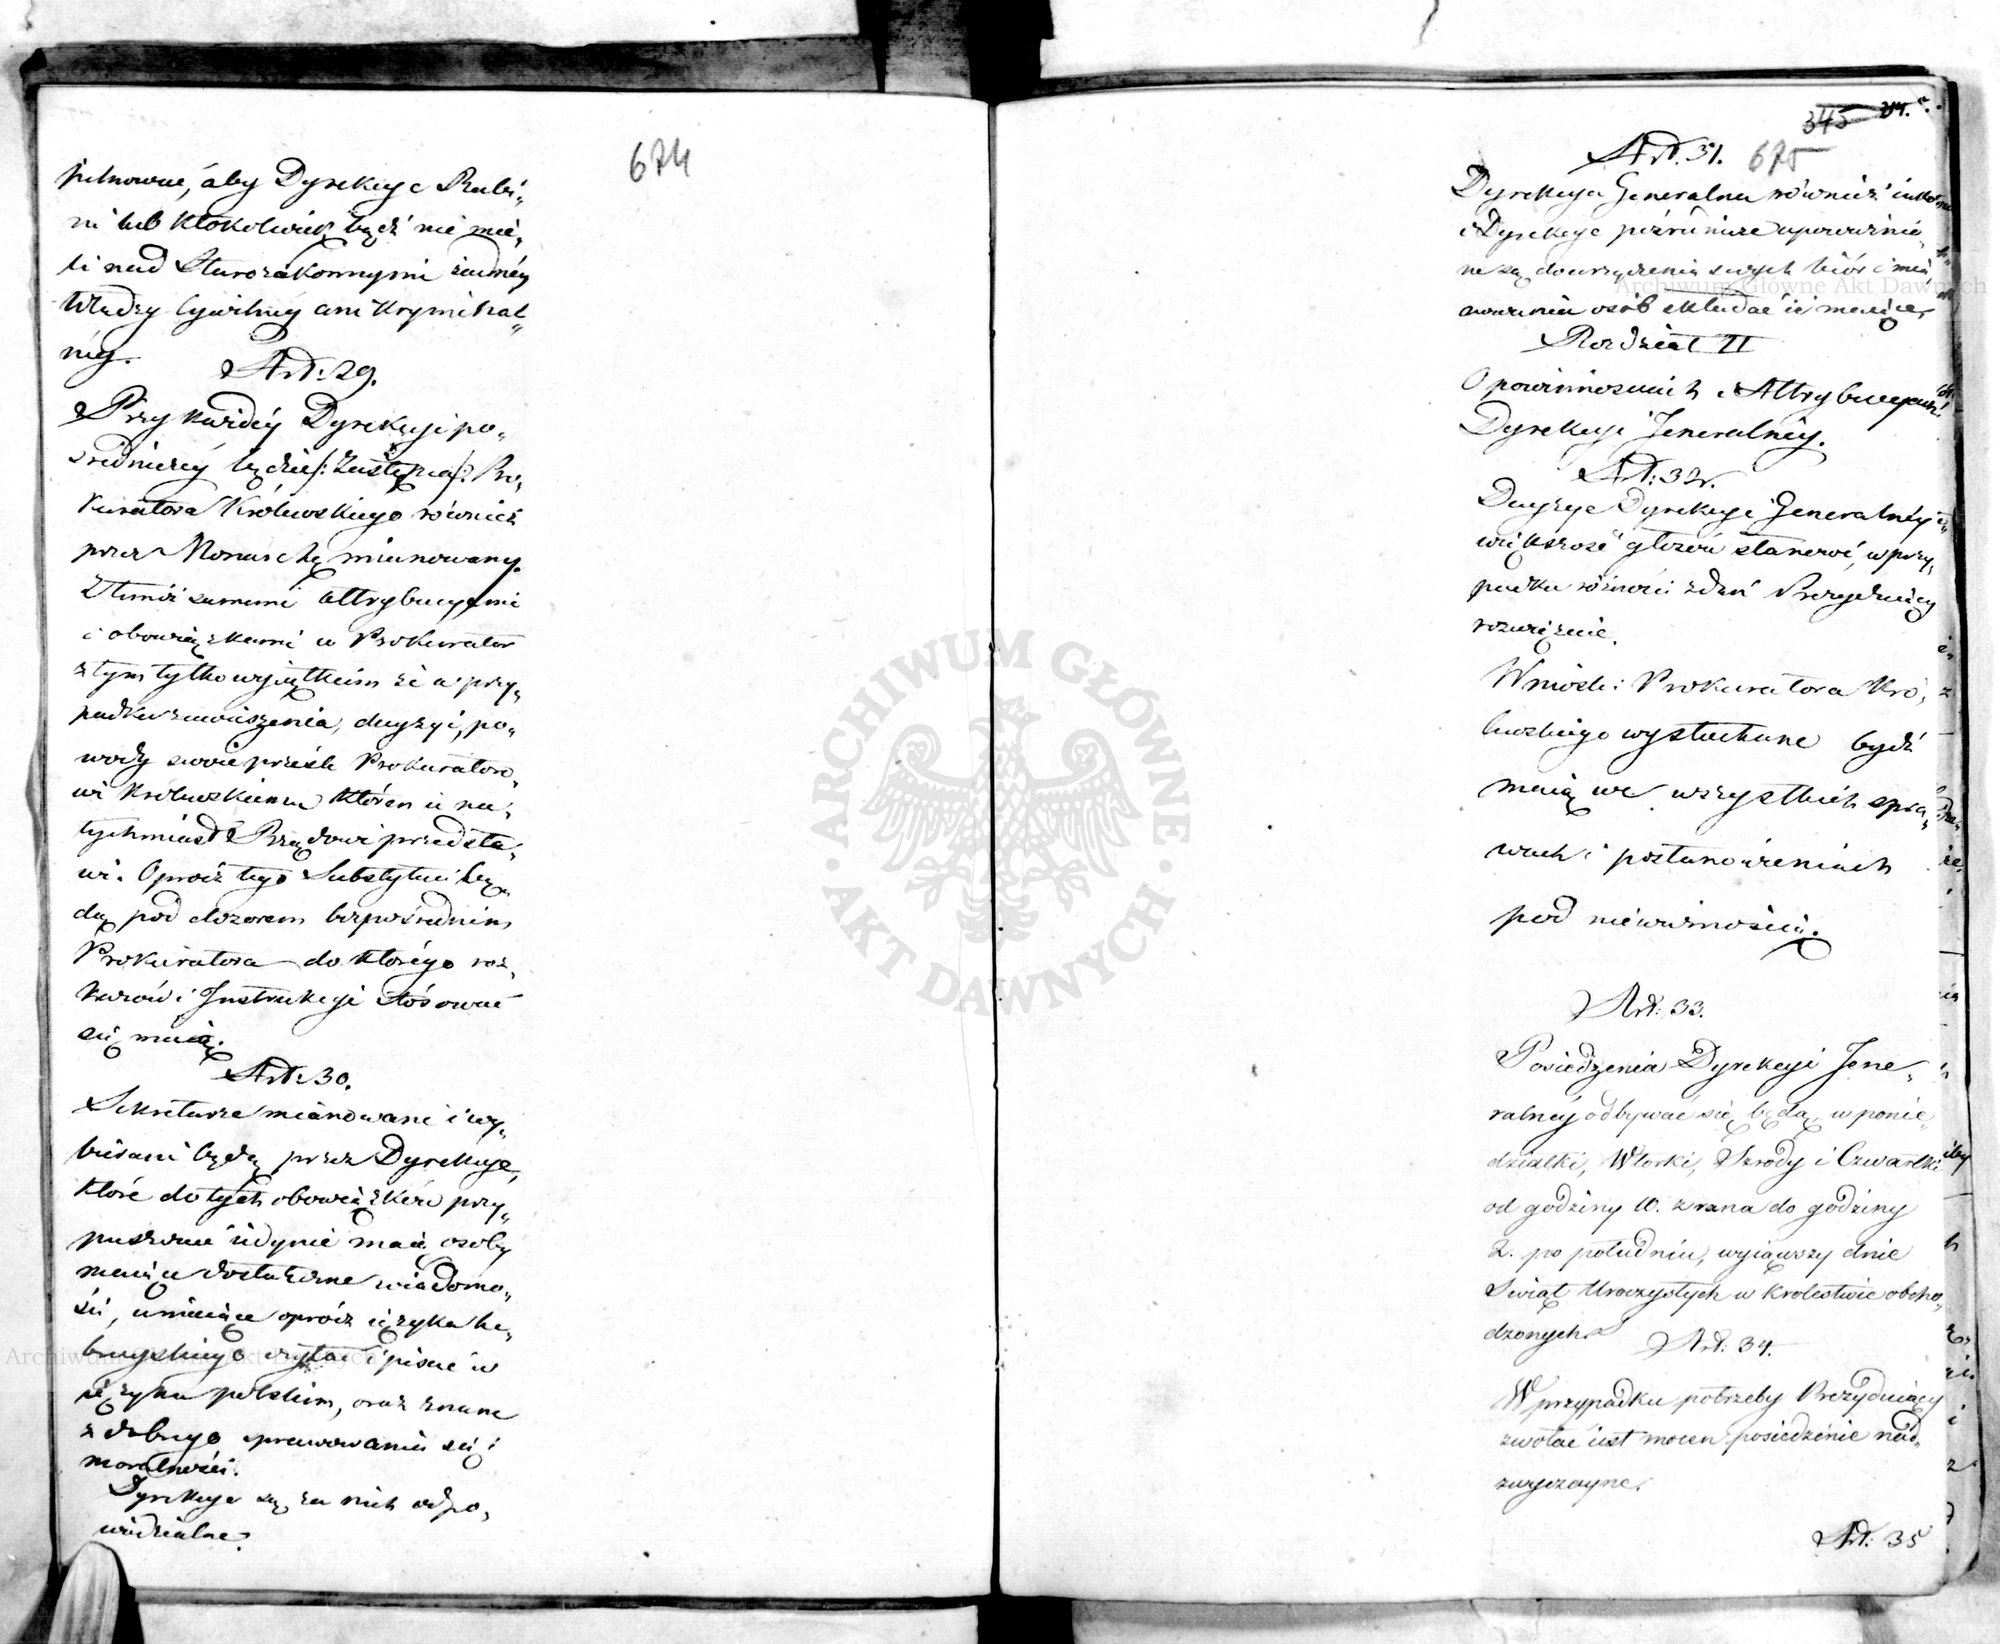 674
pilnował, aby Dyrekcye Rabi„
ni lub ktokolwiek bądź nie mie„
li nad Starozakonnymi żadnéy
Władzy Cywilnéy ani Krymínal„
néy.
Art: 29.
Przy każdéy Dyrekcyi po„
średniczéy będzie /: Zastępca :/ Pro„
kuratora Królewskiego również
przez Monarchę mianowany.
Z timiż samemi attrybucyami
i obowiązkami co Prokurator
z tym tylko wyiątkiem że w przy„
padku zawieszenia, decyzyi, po„
wody swoie prześle Prokuratoro„
wi Królewskiemu któren ie na„
tychmiast Rządowi przedsta„
wi. Oprócz tego Substytuci bę„
dą pod dozorem bezpośrednim
Prokuratora do którego roz„
kazów i Instrukcyi stósować
się maią.
Art: 30.
Sekretarze mianowani i wy„
bierani będą przez Dyrekcye,
które do tych obowiązków przy„
puszczać iedynie maią osoby
maiące dostateczne wiadomo„
ści, umieiące oprócz ięzyka he„
brayskiego czytać i pisać w
ięzyku polskim, oraz znane
z dobrego sprawowania się i
moralności.
Dyrekcye są za nich odpo„
wiedzialne.
345 214.
675
Art. 31.
Dyrekcya Generalna również iako
i Dyrekcye pośrednicze upoważnio„
ne są do urządzenia swych biór i mia
nowania osób składać ie maiące.
Rozdział II
O powinnościach i Attrybucyach
Dyrekcyi Jeneralnéy.
Art: 32.
Decyzye Dyrekcyi Generalnéy
większość głosów stanowi, w przy„
padku różności zdań Prezyduiący
rozwiązuie.
Wnioski Prokuratora Kró„
lewskiego wysłuchane bydź
maią we wszystkich spra„
wach i postanowieniach
pod nieważnością.
Art: 33.
Posiedzenia Dyrekcyi Jene„
ralnéy odbywać się będą w ponie„
działki, Wtorki, Szrody i Czwartki
od godziny 10. z rana do godziny
2. po południu, wyiąwszy dnie
Swiąt Uroczystych w Krolestwie obcho„
dzonych.
Art: 34.
W przypadku potrzeby Prezyduiący
zwołać iest mocen posiedzenie nad„
zwyczayne.
Art: 35
ARCHIWUM GŁÓWNE • AKT DAWNYCH •
Archiwum Główne Akt Dawnych
Archiwum Główne Akt Dawnych